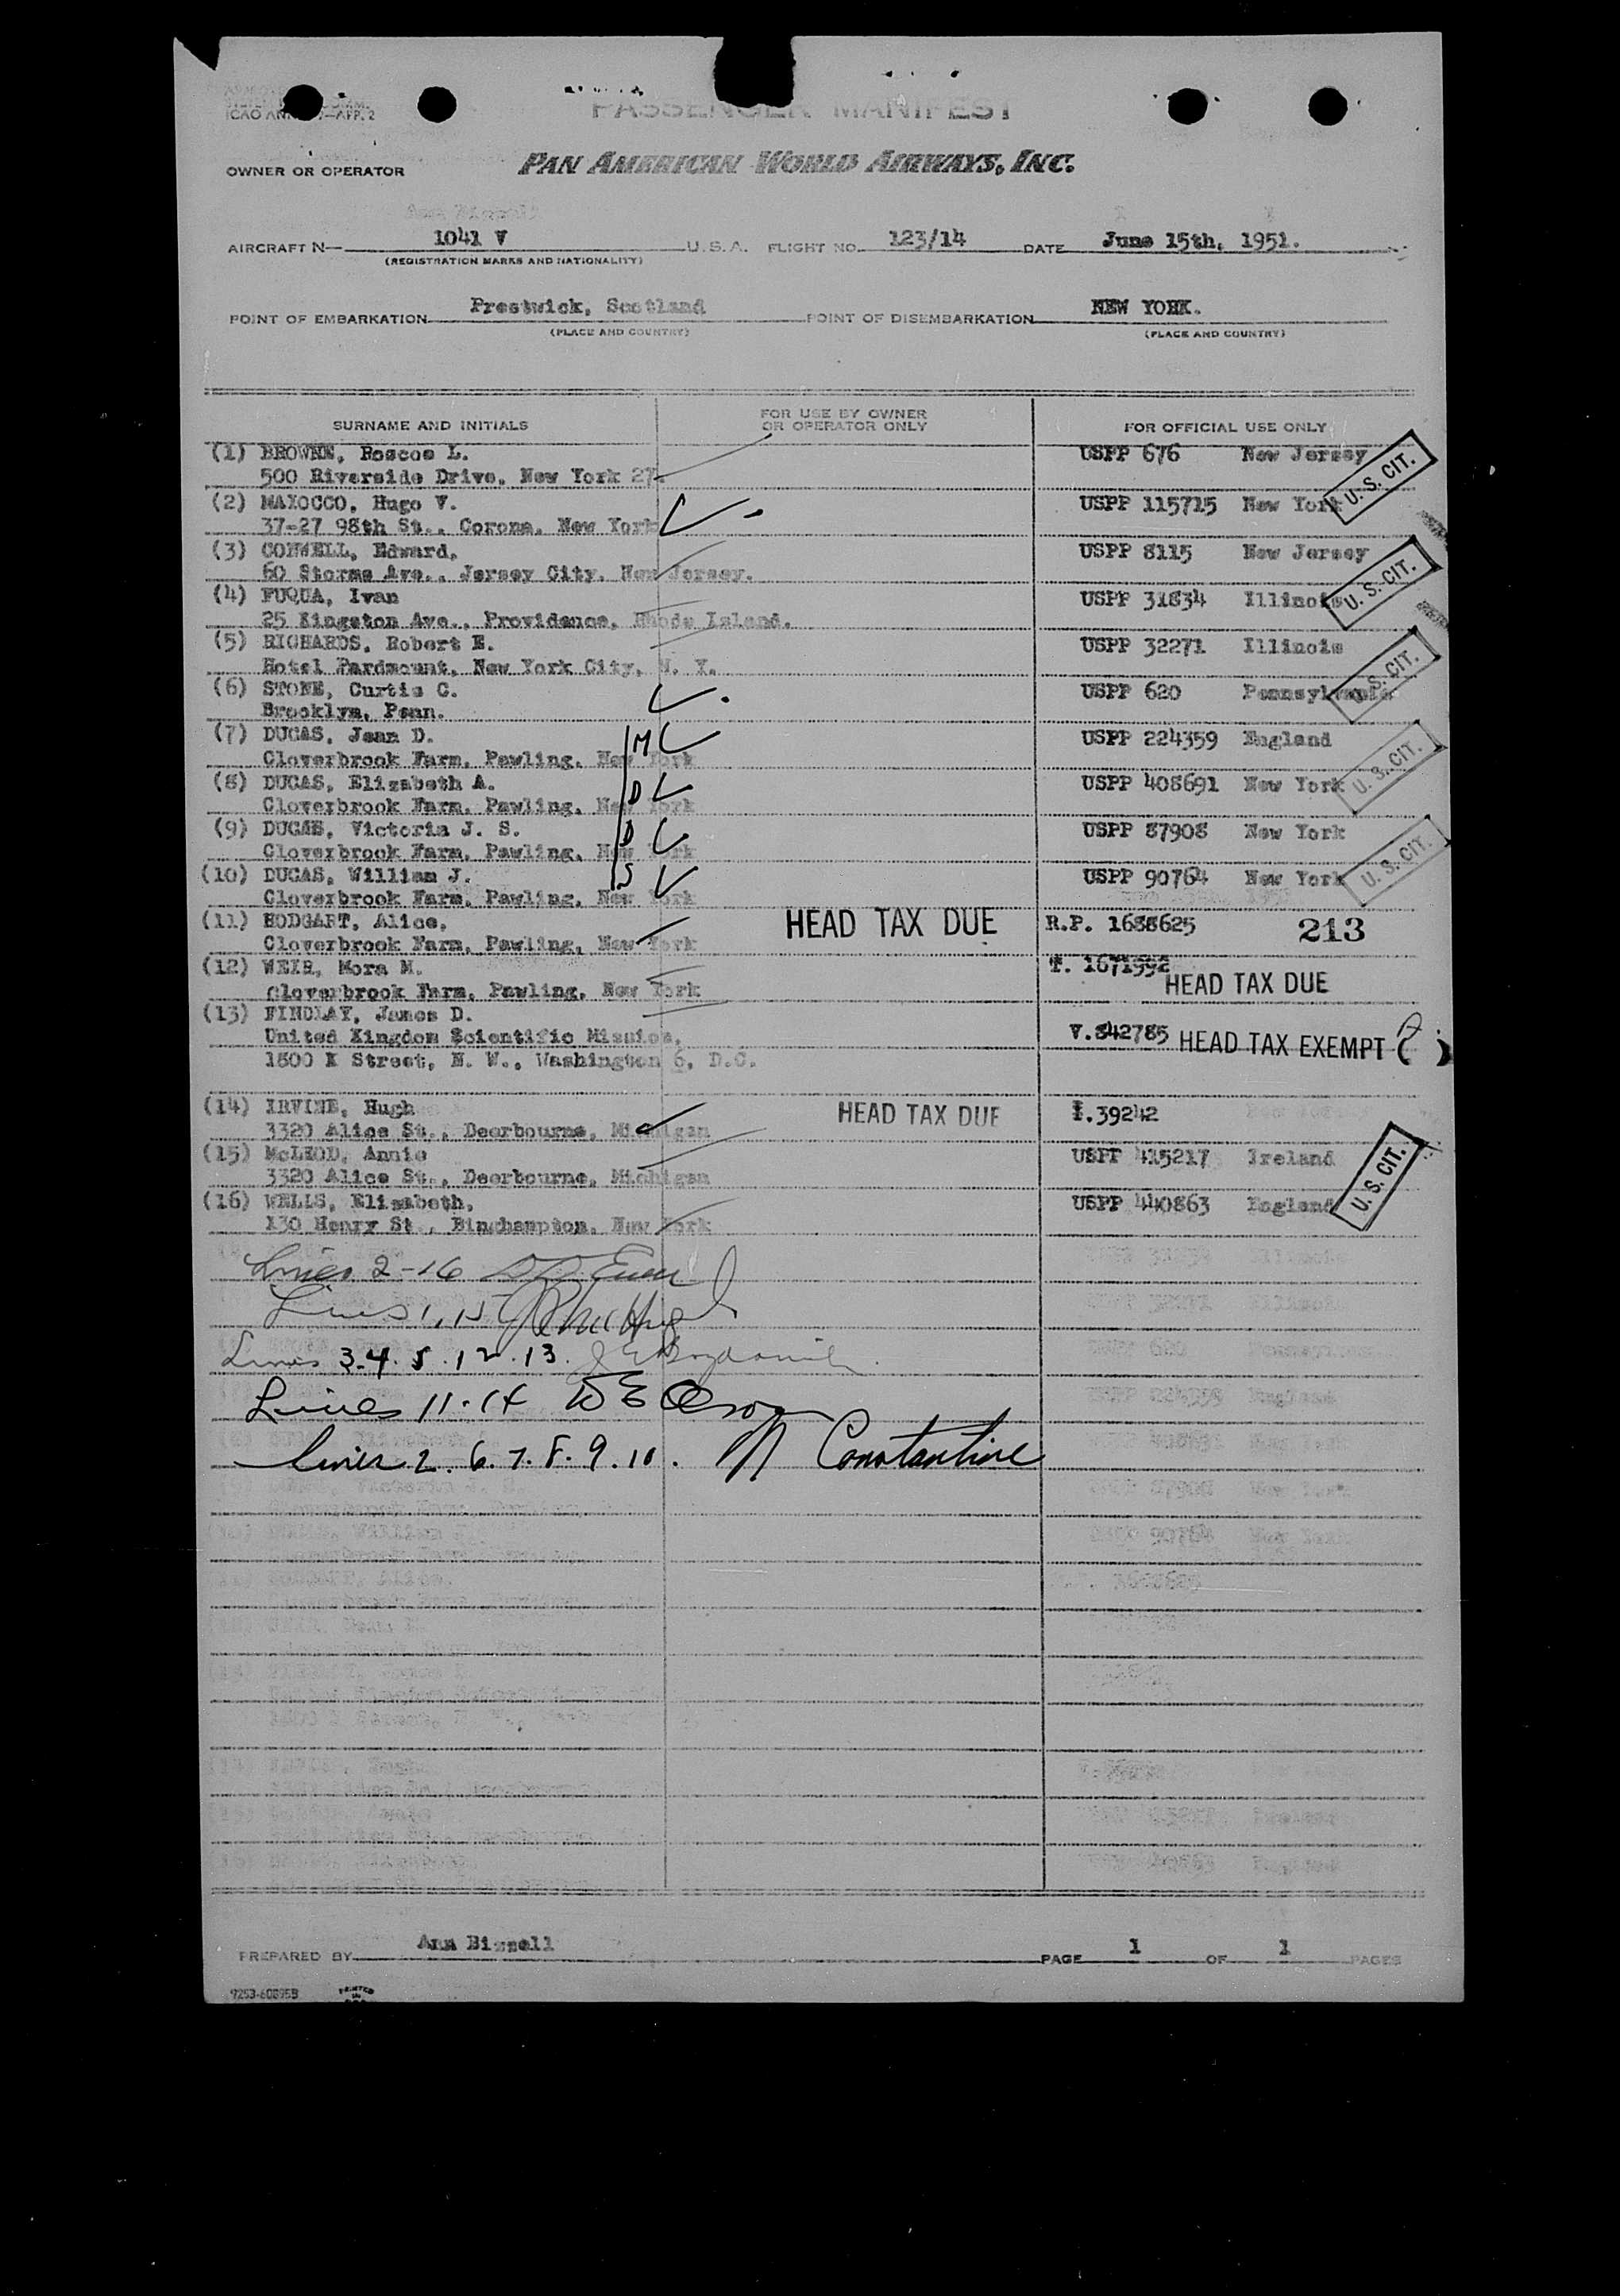 ICAO ANN
PASSENGER MANIFEST
OWNER OR OPERATOR PAN AMERICAN WORLD AIRWAYS, INC.
AIRCRAFT N— 1041 V U.S.A. FLIGHT NO. 123/14 DATE June 15th, 1951.
(REGISTRATION MARKS AND NATIONALITY)
POINT OF EMBARKATION Prestwick, Scotland POINT OF DISEMBARKATION NEW YORK.
(PLACE AND COUNTRY) (PLACE AND COUNTRY)
SURNAME AND INITIALS FOR USE BY OWNER OR OPERATOR ONLY FOR OFFICIAL USE ONLY
(1) BROWNE, Roscoe L. USPP 676 New Jersey
500 Riverside Drive, New York 27. U. S. CIT.
(2) MAIOCCO, Hugo V. USPP 115715 New York
37-27 98th St., Corona, New York
(3) CONWELL, Edward, USPP 8115 New Jersey
60 Storms Ave., Jersey City, New Jersey. U. S. CIT.
(4) FUQUA, Ivan USPP 31834 Illinois
25 Kingston Ave., Providence, Rhode Island.
(5) RICHARDS, Robert E. USPP 32271 Illinois
Hotel Pardmount, New York City, N. Y. U. S. CIT.
(6) STONE, Curtis C. USPP 620 Pennsylvania
Brooklyn, Penn.
(7) DUCAS, Jean D. M USPP 224359 England
Cloverbrook Farm, Pawling, New York U. S. CIT.
(8) DUCAS, Elizabeth A. D USPP 408691 New York
Cloverbrook Farm, Pawling, New York
(9) DUCAS, Victoria J. S. D USPP 87908 New York
Cloverbrook Farm, Pawling, New York U. S. CIT.
(10) DUCAS, William J. S USPP 90764 New York
Cloverbrook Farm, Pawling, New York
(11) HODGART, Alice, HEAD TAX DUE R.P. 1688625 213
Cloverbrook Farm, Pawling, New York
(12) WEIR, Mora M. T. 1671992 HEAD TAX DUE
Cloverbrook Farm, Pawling, New York
(13) FINDLAY, James D.
United Kingdom Scientific Mission, V.842785 HEAD TAX EXEMPT ( )
1800 K Street, N. W., Washington 6, D.C.
(14) IRVINE, Hugh HEAD TAX DUE I.39242
3320 Alice St., Deerbourne, Michigan
(15) McLEOD, Annie USPP 415217 Ireland
3320 Alice St., Deerbourne, Michigan U. S. CIT.
(16) WELLS, Elizabeth, USPP 440863 England
130 Henry St., Binghampton, New York
Lines 2-16
Lines 1, 15
Lines 3.4.5.12.13.
Lines 11.14 W E Olson
Lines 2. 6. 7. 8. 9. 10. N Constantine
PREPARED BY Ann Bissell PAGE 1 OF 1 PAGES
9253-60895B PRINTED IN